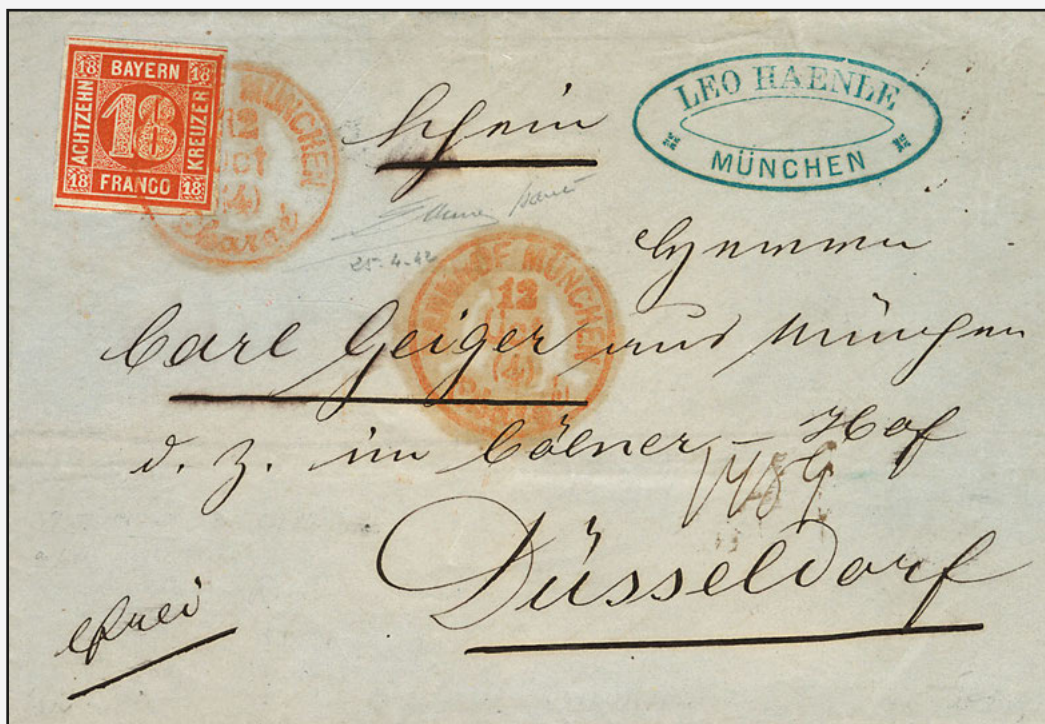 18 BAYERN 18
ACHTZEHN 18 KREUZER
18 FRANCO 18
MÜNCHEN
12
OCT
(4)
LEO HAENLE
MÜNCHEN
Schein
25.4.42
BAHNHOF MÜNCHEN
12
(4)
Herrn
Carl Geiger aus München
d. Z. im Cölner-Hof
Düsseldorf
frei